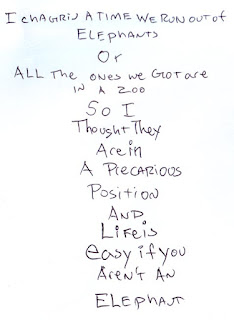 I chAGRIN A TIME WE RUN OUT of
ELEPHANTS
Or
ALL The ONES WE GOT ARE
IN A ZOO
SO I
Thought They
Are in
A PRECARIOUS
POSITION
AND
Life is
easy if you
AREN'T AN
ELEPHANT